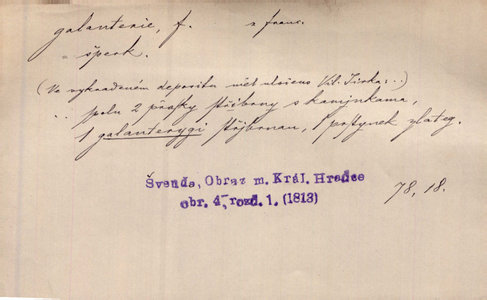 galanterie, f. z franc.
šperk.
(Ve vykradeném depositu měl uloženo Vil. Jirka:..)
.. spolu 2 přasky stříbrny s kamynkama,
1 galanterygi střjbrnau, 1 prstynek zlateg.
Švenda, Obraz m. Král. Hradce
obr. 4, rozd. 1. (1813)
78, 18.